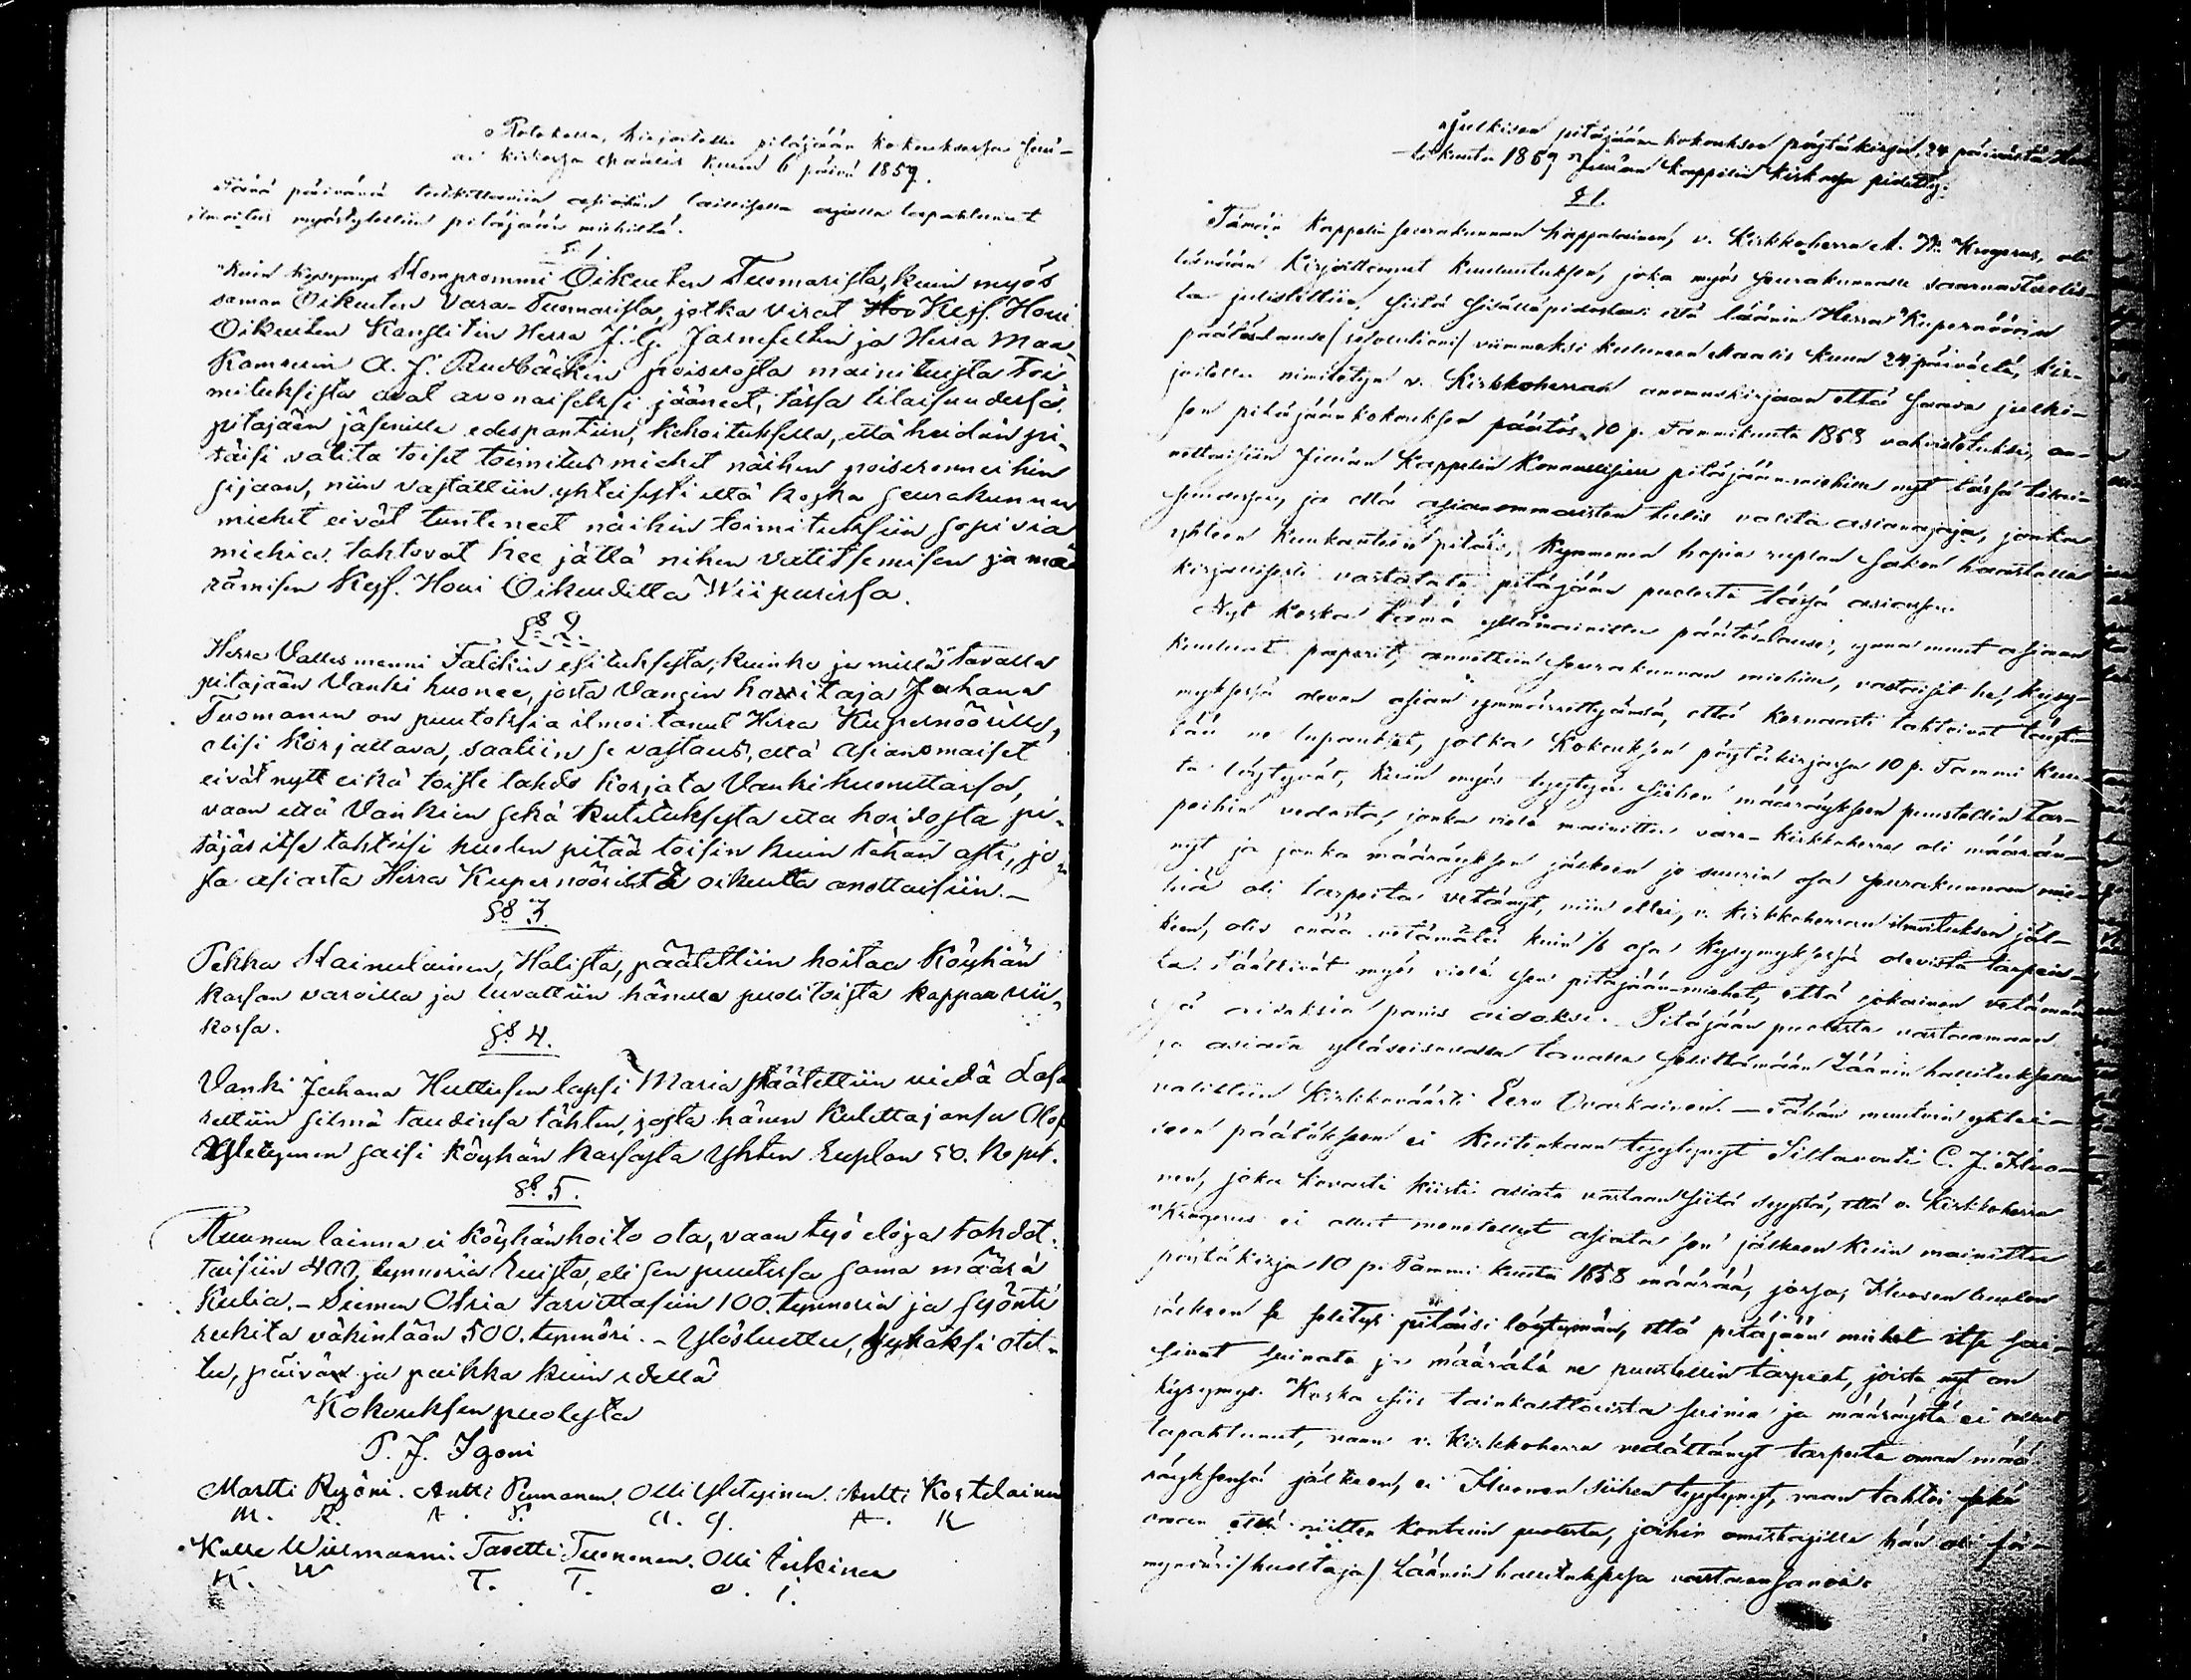 Protokolla, kirjoitettu pitäjään kokouksessa Juu-
an kirkossa Maalis kuun 6 päivä 1859.
Tänä päivänä tutkittaviin asioihin laillisella ajalla tapahtunut
ilmoitus myöstyttettiin pitäjään miehiltä.
§ 1.
Kuin kysymys Komprommi Oikeuten Tuomarista, kuin myös
saman Oikeuten Vara-Tuomarista, jotka virat Keis. Howi
Oikeuten Kanslitin Herra J. G. Jarnefeltin ja Herra Maa
Kamrerin A. J. Rudbäckin poiserosta mainituista toi
mituksista ovat avonaiseksi jääneet, tässä tilaisuudessa
pitäjään jäsenille edespantiin, kehoituksella, että heidän pi-
täisi valita toiset toimitus miehet näihen poiseronneihin
sijaan, niin vastattiin yhteisesti että koska seurakunnan
miehet eivät tunteneet näihin toimituksiin sopivia
miehiä, tahtovat hee jättä nihen valitsemisen ja mää
rämisen Keis. Howi Oikeudella Wiipurissa.
§ 2.
Herra Vallesmanni Falckin esituksesta, kuinka ja millä tavalla
pitäjään Vanki huonee, josta Vangin havitaja Juhana
Tuomanen on puutoksia ilmoitanut Herra Kupernöörille,
olisi korjattava, saatiin se vastaus, että asianomaiset
eivät nytt eikä toiste tahdo korjata Vankihuonettansa,
vaan että Vankien sekä kuletuksesta etta hoidosta pi-
täjäs itse tahtoisi huolen pitää toisin kuin tähän asti, jo
sta asiasta Herra Kupernöörildä oikeutta anottaisiin.
§ 3.
Pekka Kainulainen, Halista, päätettiin hoitaa Köyhän
kassan varoilla ja luvattiin hänelle puolitoista kappaa vii-
kossa.
§ 4.
Vanki Juhana Huttusen lapsi Maria päätettiin viedä Lasa
rettiin silmä taudinsa tähten, josta hänen kulettajansa Olof
Yletyinen saisi Köyhän kassasta yhten Ruplan 50. kopek.
§ 5.
Ruunun lainna ei Köyhänhoito ota, vaan työ eloja tahdot-
taisiin 400, tynnöriä Ruista, eli sen puutessa sama määrä
Kulia. Siemen Otria tarvittaisiin 100. tynnöriä ja syönti
rukita vähintään 500. tynnöri. Ylösluettu, hyväksi otet-
tu, päivä ja paikka kuin edellä
Kokouksen puolesta
P. J. Igoni
Martti Ryöni. Antti Purmonen. Olli Yletyinen. Antti Kortelainen
M. R. A. P. O. Y. A. K
Kalle Willmanni. Tavetti Tuononen. Olli
K. W T. T. O. I.
Julkisen pitäjään kokouksen pöytäkirja, 24 päivästä
kuuta 1859 Juuan kappelin kirkossa pidetty.
§ 1.
Tämän Kappelin seurakunnan kappalainen, v. Kirkkoherra A. W. Krogerus, oli
läsnään kirjoittanut kuulutuksen, joka myös seurakunnalle saarnastuolis-
ta julistettiin, siitä sisälläpidostansa että läänin Herra Kupernöörin
päätöslause (resolutioni) viimmeksi kuluneen Maalis kuun 24 päivästä, kir-
joitettu nimitetyn v. Kirkkoherran anomuskirjaan että saava julki-
sen pitäjäänkokouksen päätös 10 p. Tammikuuta 1858 vahvistetuksi, an-
nettaisiin Juuan Kappelin Kunnallisille pitäjään-miehille nyt tässä tilai-
suudessa, ja että asianommaisten tulis valita asianajaja, jonka
yhteen kuukauteen pitäis, kymmenen hopia ruplan sakon haastolla
kirjallisesti vastata pitäjään puolesta tässä asiassa.
Nyt koska tämä yllämainittu päätöslause, ynnä muut asiaan
kuuluvat paperit, annettiin seurakunnan miehille, vastaisit he, kysy-
myksessä olevan asian ymmärrettyänsä, että kernaasti tahtoivat täyt-
tää ne lupaukset, jotka Kokouksen pöytäkirjassa 10 p. Tammi kuu-
ta löytyvät, kuin myös tyytyä siihen määräykseen puustellin tar-
peihin vedosta, jonka vielä mainittu vara-kirkkoherra oli määrän-
nyt ja jonka määräyksen jälkeen jo suurin osa seurakunnan mie-
hiä oli tarpeita vetänyt, niin ettei, v. kirkkoherran ilmoituksen jäl-
keen, olis enää vetämätä kuin 1/6 osa kysymyksessä olevista tarpeis-
ta. Päättivät myös vielä sen pitäjään-miehet, että jokainen vetämän
sä aidaksia panis aidaksi. Pitäjään puolesta vastaamaan
ja asiain ylläseisovalla tavalla selittämään Läänin hallituksessa
valittiin Kirkkoväärti Eero Vuorkoinen. — Tähän muutoin yhtei-
seen päätökseen ei kuitenkaan tyytynyt Siltavouti C. J. Kuo-
nen, joka kovasti kiisti asiata vastaan siitä syystä, että v. Kirkkoherra
Krogerus ei ollut menetellyt asiata sen jälkeen kuin mainittu
pöytäkirja 10 p. Tammi kuuta 1858 määrää, jossa, Kuosen luulon
jälkeen se selitys pitäisi löytymän, että pitäjään miehet itse sai-
sivat suinata ja määrätä ne puustellin tarpeet, joista nyt on
kysymys. Koska siis tainkaltaista suinia ja määräystä ei ollut
tapahtunut, vaan v. Kirkkoherra vedättänyt tarpeita oman mää
räyksensä jälkeen, ei Kuonen siihen tyytynyt, vaan tahtoi sekä
oman että niitten Kontuin puolesta, joihin omistajille hän oli för-
myntäri (huoltaja) Läänin hallituksessa vastaansanoa.